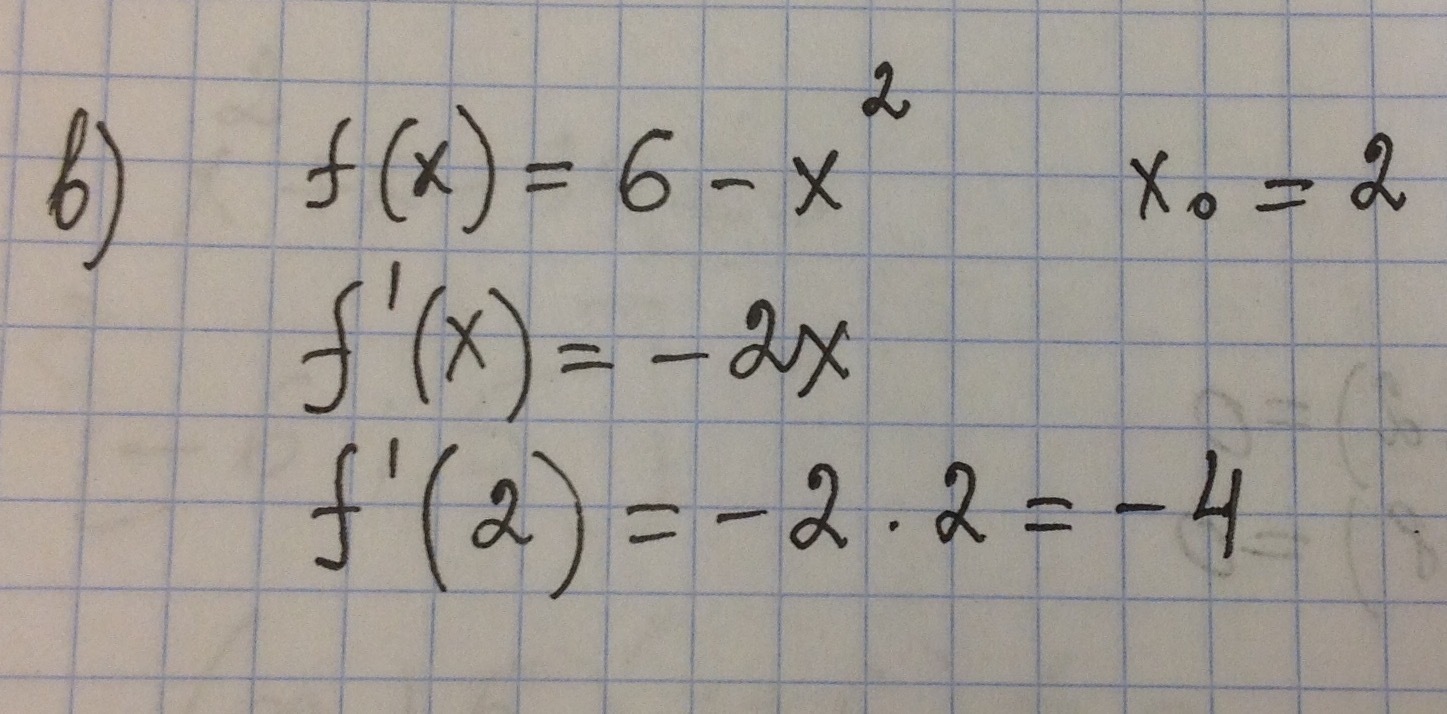 в) f(x) = 6 - x² x₀ = 2
f'(x) = - 2x
f'(2) = - 2 · 2 = - 4